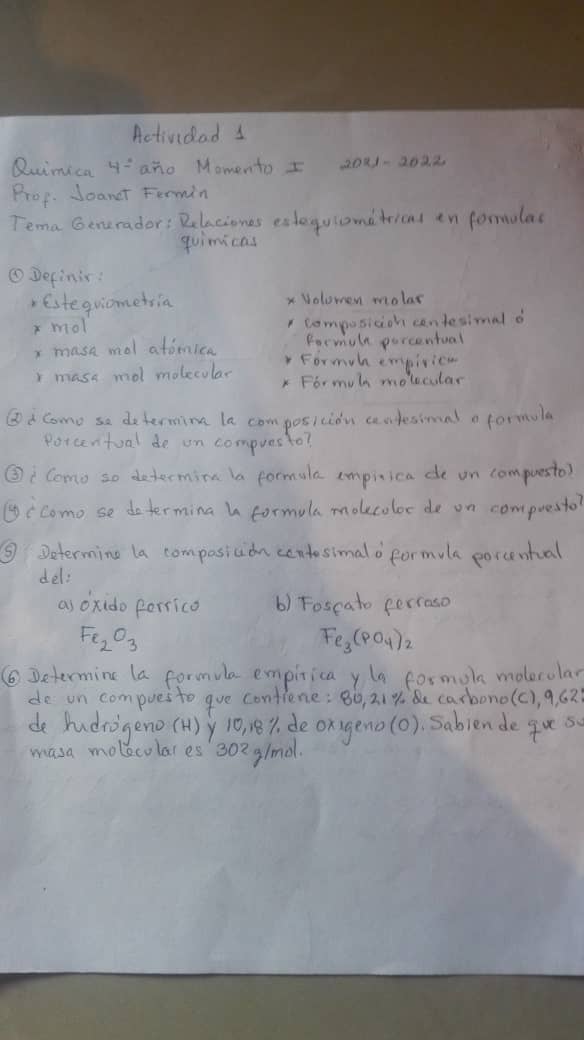 Actividad 1
Quimica 4º año Momento I 2021-2022
Prof. Joanet Fermin
Tema Generador: Relaciones estequiométricas en formulas
quimicas
① Definir:
* Estequiometria
* mol
* masa mol atómica
* masa mol molecular
* Volumen molar
* composición centesimal ó
formula porcentual
* Fórmula empirica
* Fórmula molecular
② ¿Como se determina la composición centesimal o formula
Porcentual de un compuesto?
③ ¿Como so determina la formula empirica de un compuesto?
④ ¿como se determina la formula molecolar de un compuesto?
⑤ Determine la composición centesimal ó formula porcentual
del:
a) óxido ferrico
Fe₂O₃
b) Fosfato ferroso
Fe₃(PO₄)₂
⑥ Determine la formula empirica y la formula molecular
de un compuesto que contiene: 80,21% de carbono(C), 9,62%
de hidrógeno (H) y 10,18% de oxigeno (O). Sabiende que su
masa molecular es 302 g/mol.